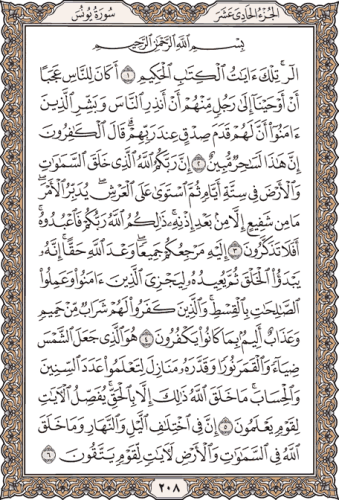 سُورَةُ يُونُسَ الجُزْءُ الحَادِيَ عَشَرَ
بِسْمِ اللَّهِ الرَّحْمَٰنِ الرَّحِيمِ
الٓر ۚ تِلْكَ ءَايَٰتُ ٱلْكِتَٰبِ ٱلْحَكِيمِ ١ أَكَانَ لِلنَّاسِ عَجَبًا
أَنْ أَوْحَيْنَآ إِلَىٰ رَجُلٍ مِّنْهُمْ أَنْ أَنذِرِ ٱلنَّاسَ وَبَشِّرِ ٱلَّذِينَ
ءَامَنُوٓا۟ أَنَّ لَهُمْ قَدَمَ صِدْقٍ عِندَ رَبِّهِمْ ۗ قَالَ ٱلْكَٰفِرُونَ
إِنَّ هَٰذَا لَسَٰحِرٌ مُّبِينٌ ٢ إِنَّ رَبَّكُمُ ٱللَّهُ ٱلَّذِى خَلَقَ ٱلسَّمَٰوَٰتِ
وَٱلْأَرْضَ فِى سِتَّةِ أَيَّامٍ ثُمَّ ٱسْتَوَىٰ عَلَى ٱلْعَرْشِ ۖ يُدَبِّرُ ٱلْأَمْرَ ۖ
مَا مِن شَفِيعٍ إِلَّا مِنۢ بَعْدِ إِذْنِهِۦ ۚ ذَٰلِكُمُ ٱللَّهُ رَبُّكُمْ فَٱعْبُدُوهُ ۚ
أَفَلَا تَذَكَّرُونَ ٣ إِلَيْهِ مَرْجِعُكُمْ جَمِيعًا ۖ وَعْدَ ٱللَّهِ حَقًّا ۚ إِنَّهُۥ
يَبْدَؤُا۟ ٱلْخَلْقَ ثُمَّ يُعِيدُهُۥ لِيَجْزِىَ ٱلَّذِينَ ءَامَنُوا۟ وَعَمِلُوا۟
ٱلصَّٰلِحَٰتِ بِٱلْقِسْطِ ۚ وَٱلَّذِينَ كَفَرُوا۟ لَهُمْ شَرَابٌ مِّنْ حَمِيمٍ
وَعَذَابٌ أَلِيمٌۢ بِمَا كَانُوا۟ يَكْفُرُونَ ٤ هُوَ ٱلَّذِى جَعَلَ ٱلشَّمْسَ
ضِيَآءً وَٱلْقَمَرَ نُورًا وَقَدَّرَهُۥ مَنَازِلَ لِتَعْلَمُوا۟ عَدَدَ ٱلسِّنِينَ
وَٱلْحِسَابَ ۚ مَا خَلَقَ ٱللَّهُ ذَٰلِكَ إِلَّا بِٱلْحَقِّ ۚ يُفَصِّلُ ٱلْءَايَٰتِ
لِقَوْمٍ يَعْلَمُونَ ٥ إِنَّ فِى ٱخْتِلَٰفِ ٱلَّيْلِ وَٱلنَّهَارِ وَمَا خَلَقَ
ٱللَّهُ فِى ٱلسَّمَٰوَٰتِ وَٱلْأَرْضِ لَءَايَٰتٍ لِّقَوْمٍ يَتَّقُونَ ٦
٢٠٨